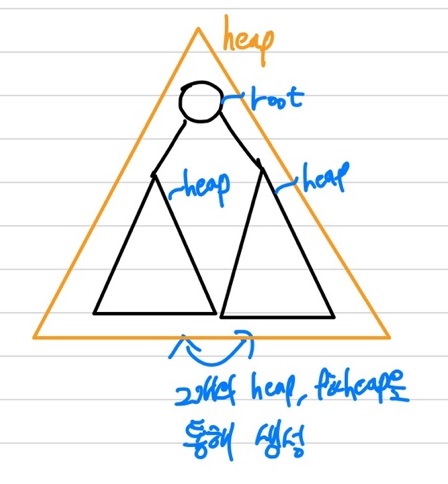 heap
root
heap
heap
2개의 heap, fixheap을
통해 생성